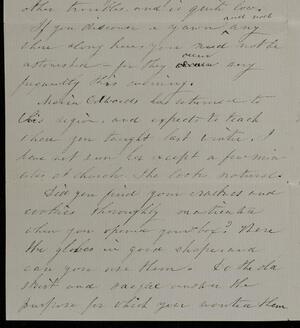 other troubles, and is quite low.
If you discover a yawn and not
there along here, you need not be
astonished – for they occur any
frequently this evening.
Maria Edwards has returned to
this region, and expects to teach
where you taught last winter. I
have not seen her except a few min
utes at church. She looks natural.
Did you find your crashes and
cookies thoroughly masticated
when you opened your box? Were
the gloves in good shape and
can you use them. Do the
skirt and answer the
purpose for which you wanted them